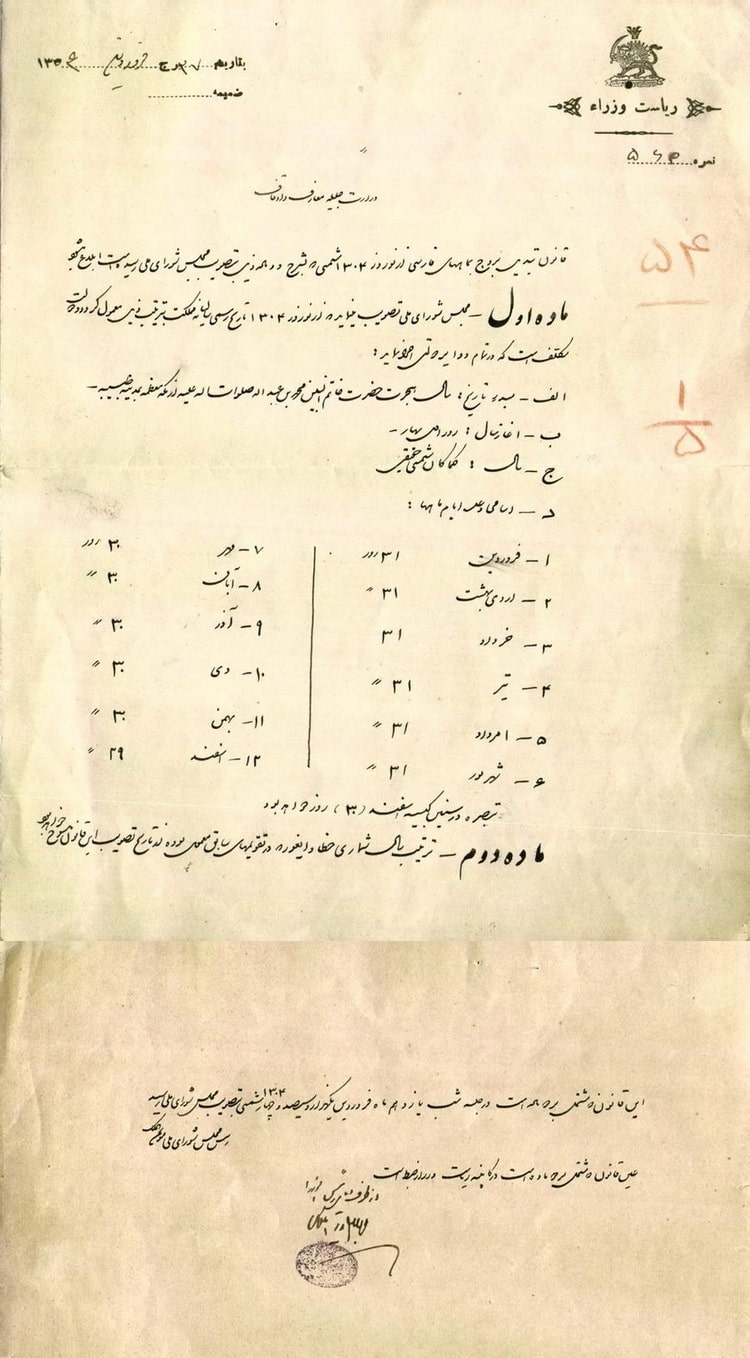 ریاست وزراء
نمره
بتاریخ ... برج فروردین ۱۳۰۴
ضمیمه
وزارت جلیله معارف و اوقاف
قانون تبدیل بروج بماههای فارسی از نوروز ۱۳۰۴ شمسی که بشرح دو ماده ذیل بتصویب مجلس شورای ملی رسیده است ابلاغ میشود
ماده اول – مجلس شورای ملی تصویب مینماید که از نوروز ۱۳۰۴ تاریخ رسمی سالیانه مملکت بترتیب ذیل معمول گردد و دولت
مکلف است که در تمام دوایر دولتی اجرا نماید:
الف – مبدء تاریخ: سال هجرت حضرت خاتم النبیین محمد بن عبداله صلوات اله علیه از مکه معظمه بمدینه طیبه –
ب – آغاز سال: روز اول بهار –
ج – سال: کماکان شمسی حقیقی
د – اسامی و عده ایام ماهها:
۱ – فروردین ۳۱ روز
۲ – اردی بهشت ۳۱ "
۳ – خرداد ۳۱
۴ – تیر ۳۱ "
۵ – امرداد ۳۱ "
۶ – شهریور ۳۱ "
۷ – مهر ۳۰ روز
۸ – آبان ۳۰ "
۹ – آذر ۳۰ "
۱۰ – دی ۳۰ "
۱۱ – بهمن ۳۰ "
۱۲ – اسفند ۲۹ "
تبصره در سنین کبیسه اسفند (۳۰) روز خواهد بود
ماده دوم – ترتیب سال شماری ختا و ایغور که در تقویمهای سابق معمول بوده از تاریخ تصویب این قانون منسوخ خواهد بود
۴۵
۱
۵
این قانون که مشتمل بر دو ماده است در جلسه شب یازدهم ماه فروردین یکهزار و سیصد و چهار ۱۳۰۴ شمسی بتصویب مجلس شورای ملی رسید
رئیس مجلس شورای ملی
عین قانون که مشتمل بر دو ماده است در کابینه ریاست وزراء ضبط است
از طرف